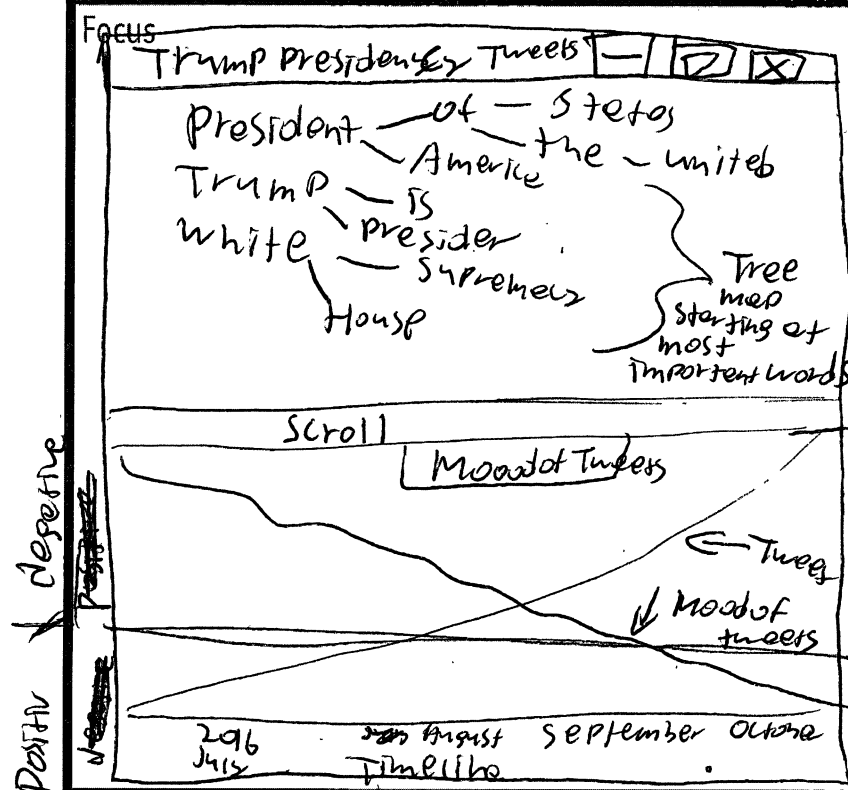 Focus
Trump Presidency Tweets
President — of — States
America the — united
Trump — is
presider
White — Supremecy
House
Tree
map
starting at
most
important words
Scroll
Mood of Tweets
Negative
Tweets
Mood of
tweets
Positiv
2016 August September Octobe
July Timeline